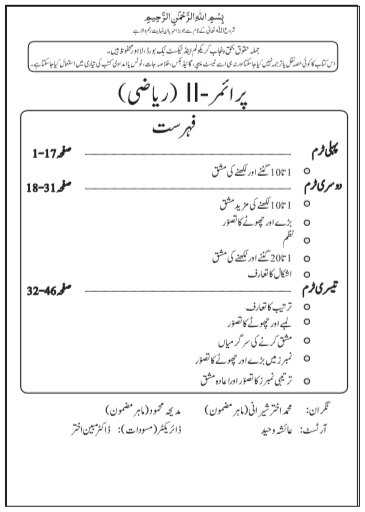 بِسْمِ اللهِ الرَّحْمٰنِ الرَّحِيْمِ
شروع اللہ تعالیٰ کے نام سے جو بڑا مہربان نہایت رحم والا ہے
جملہ حقوق بحق پنجاب کریکولم اینڈ ٹیکسٹ بک بورڈ، لاہور محفوظ ہیں۔
اس کتاب کا کوئی حصہ نقل یا ترجمہ نہیں کیا جاسکتا اور نہ ہی اسے ٹیسٹ پیپر، گائیڈ بکس، خلاصہ جات، نوٹس یا امدادی کتب کی تیاری میں استعمال کیا جاسکتا ہے۔
پرائمر-II (ریاضی)
فہرست
پہلی ٹرم صفحہ 1-17
1 تا 10 گننے اور لکھنے کی مشق
دوسری ٹرم صفحہ 18-31
1 تا 10 لکھنے کی مزید مشق
بڑے اور چھوٹے کا تصوّر
نظم
1 تا 20 گننے اور لکھنے کی مشق
اشکال کا تعارف
تیسری ٹرم صفحہ 32-46
ترتیب کا تعارف
لمبے اور چھوٹے کا تصوّر
مشق کرنے کی سرگرمیاں
نمبرز میں بڑے اور چھوٹے کا تصوّر
ترتیبی نمبرز کا تصوّر اور اعادہ مشق
نگران: محمد اختر شیرانی (ماہر مضمون) مدیحہ محمود (ماہر مضمون)
آرٹسٹ: عائشہ وحید ڈائریکٹر (مسودات): ڈاکٹر مبین اختر